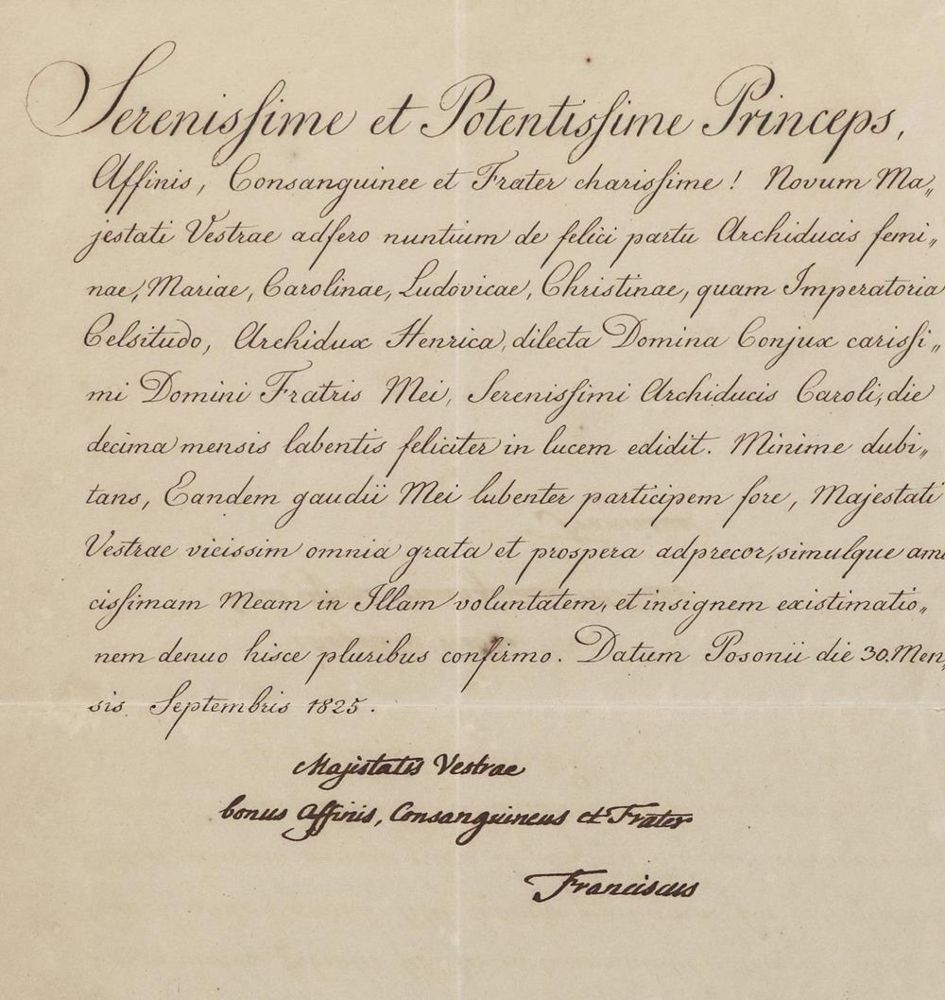 Serenissime et Potentissime Princeps,
Affinis, Consanguinee et Frater charissime! Novum Ma„
jestati Vestrae adfero nuntium de felici partu Archiducis femi„
nae, Mariae, Carolinae, Ludovicae, Christinae, quam Imperatoria
Celsitudo, Archidux Henrica, dilecta Domina Conjux carissi„
mi Domini Fratris Mei, Serenissimi Archiducis Caroli, die
decima mensis labentis feliciter in lucem edidit. Minime dubi„
tans, Eandem gaudii Mei lubenter participem fore, Majestati
Vestrae vicissim omnia grata et prospera adprecor, simulque ami
cissimam Meam in Illam voluntatem, et insignem existimatio„
nem denuo hisce pluribus confirmo. Datum Posonii die 30. Men„
sis Septembris 1825.
Majestatis Vestrae
bonus Affinis, Consanguineus et Frater
Franciscus